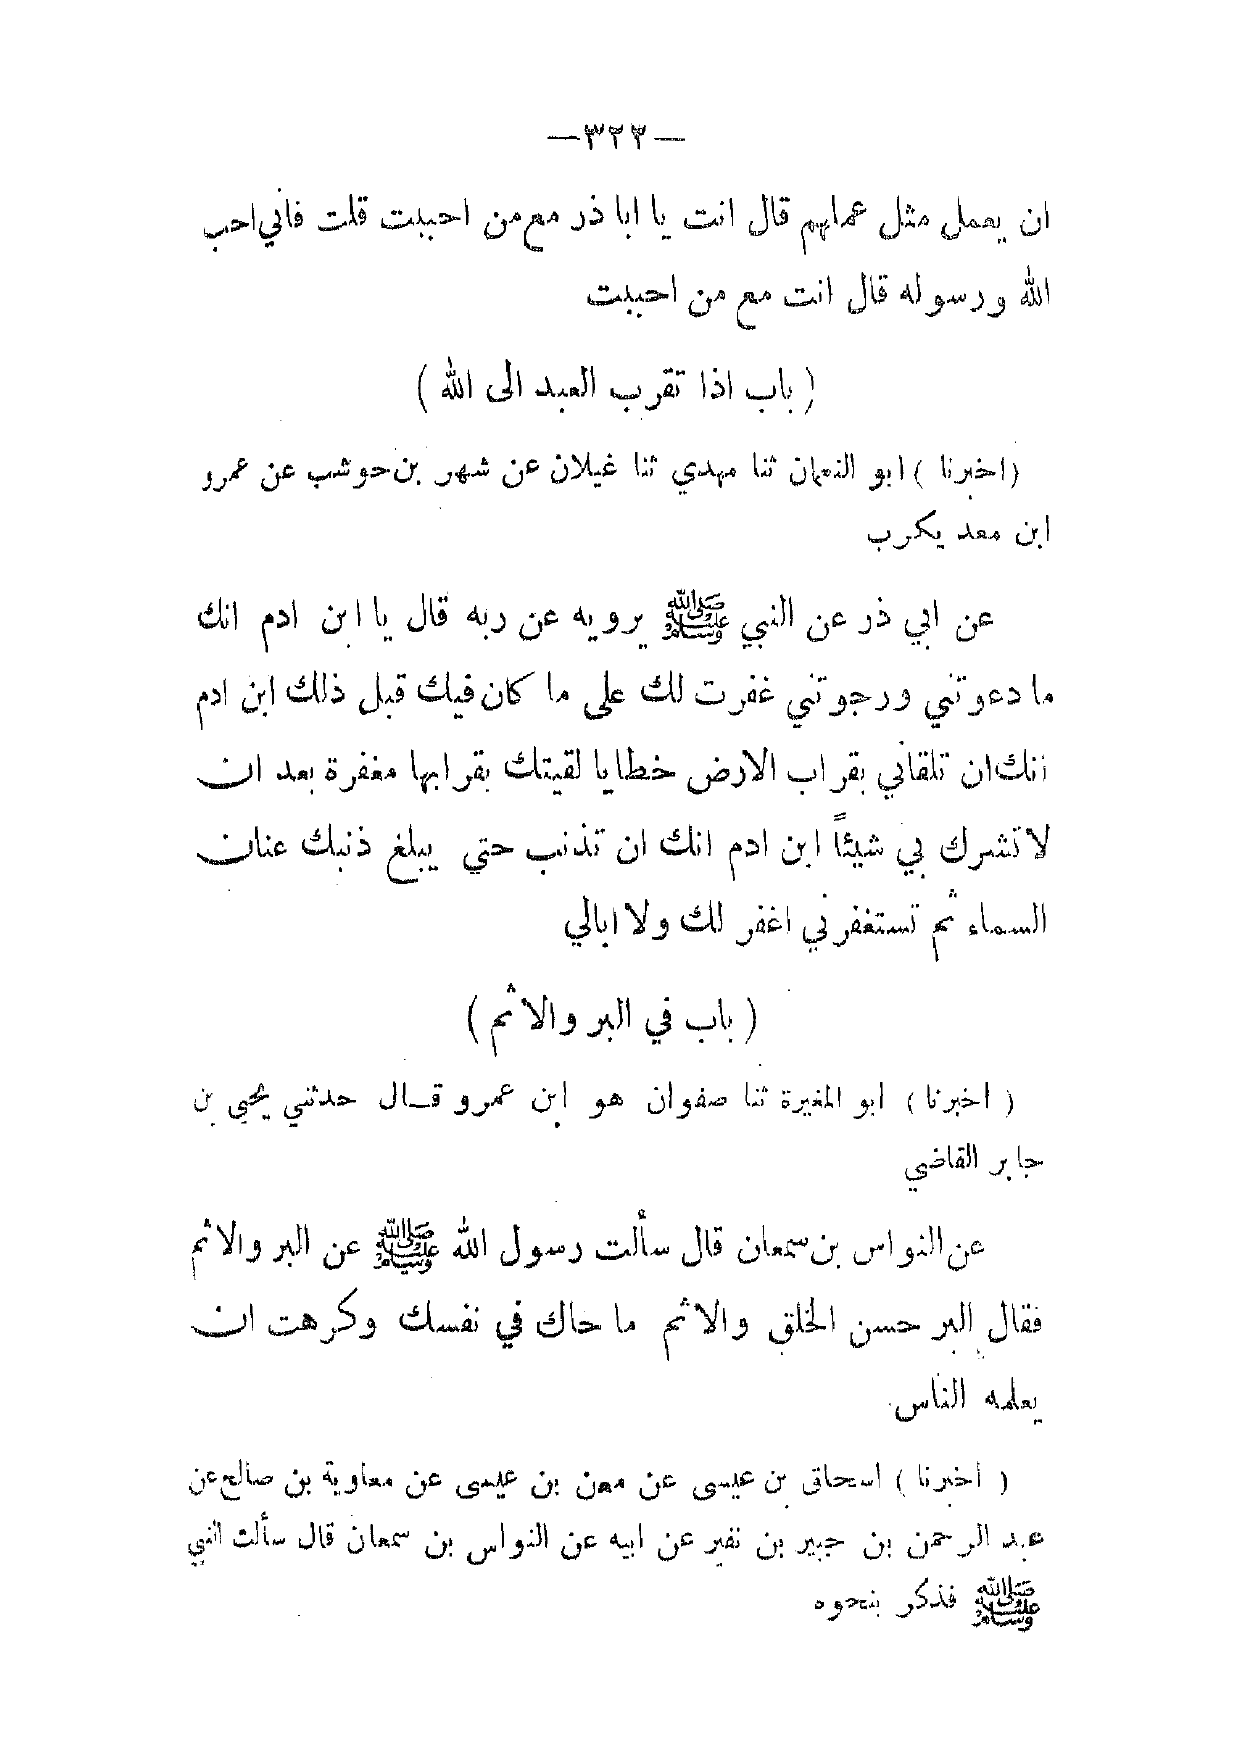 —٣٢٣—
ان يعمل مثل عملهم قال انت يا ابا ذر مع من احببت قلت فاني احب
الله ورسوله قال انت مع من احببت
( باب اذا تقرب العبد الى الله )
(اخبرنا ) ابو النعمان ثنا مهدي ثنا غيلان عن شهر بن حوشب عن عمرو
ابن معد يكرب
عن ابي ذر عن النبي ﷺ يرويه عن ربه قال يا ابن ادم انك
ما دعوتني ورجوتني غفرت لك على ما كان فيك قبل ذلك ابن ادم
انك ان تلقاني بقراب الارض خطايا لقيتك بقرابها مغفرة بعد ان
لا تشرك بي شيئاً ابن ادم انك ان تذنب حتى يبلغ ذنبك عنان
السماء ثم تستغفرني اغفر لك ولا ابالي
( باب في البر والاثم )
( اخبرنا ) ابو المغيرة ثنا صفوان هو ابن عمرو قال حدثني يحيى بن
جابر القاضي
عن النواس بن سمعان قال سألت رسول الله ﷺ عن البر والاثم
فقال البر حسن الخلق والاثم ما حاك في نفسك وكرهت ان
يعلمه الناس
( اخبرنا ) اسحاق بن عيسى عن معن بن عيسى عن معاوية بن صالح عن
عبد الرحمن بن جبير بن نفير عن ابيه عن النواس بن سمعان قال سألت النبي
ﷺ فذكر بنحوه